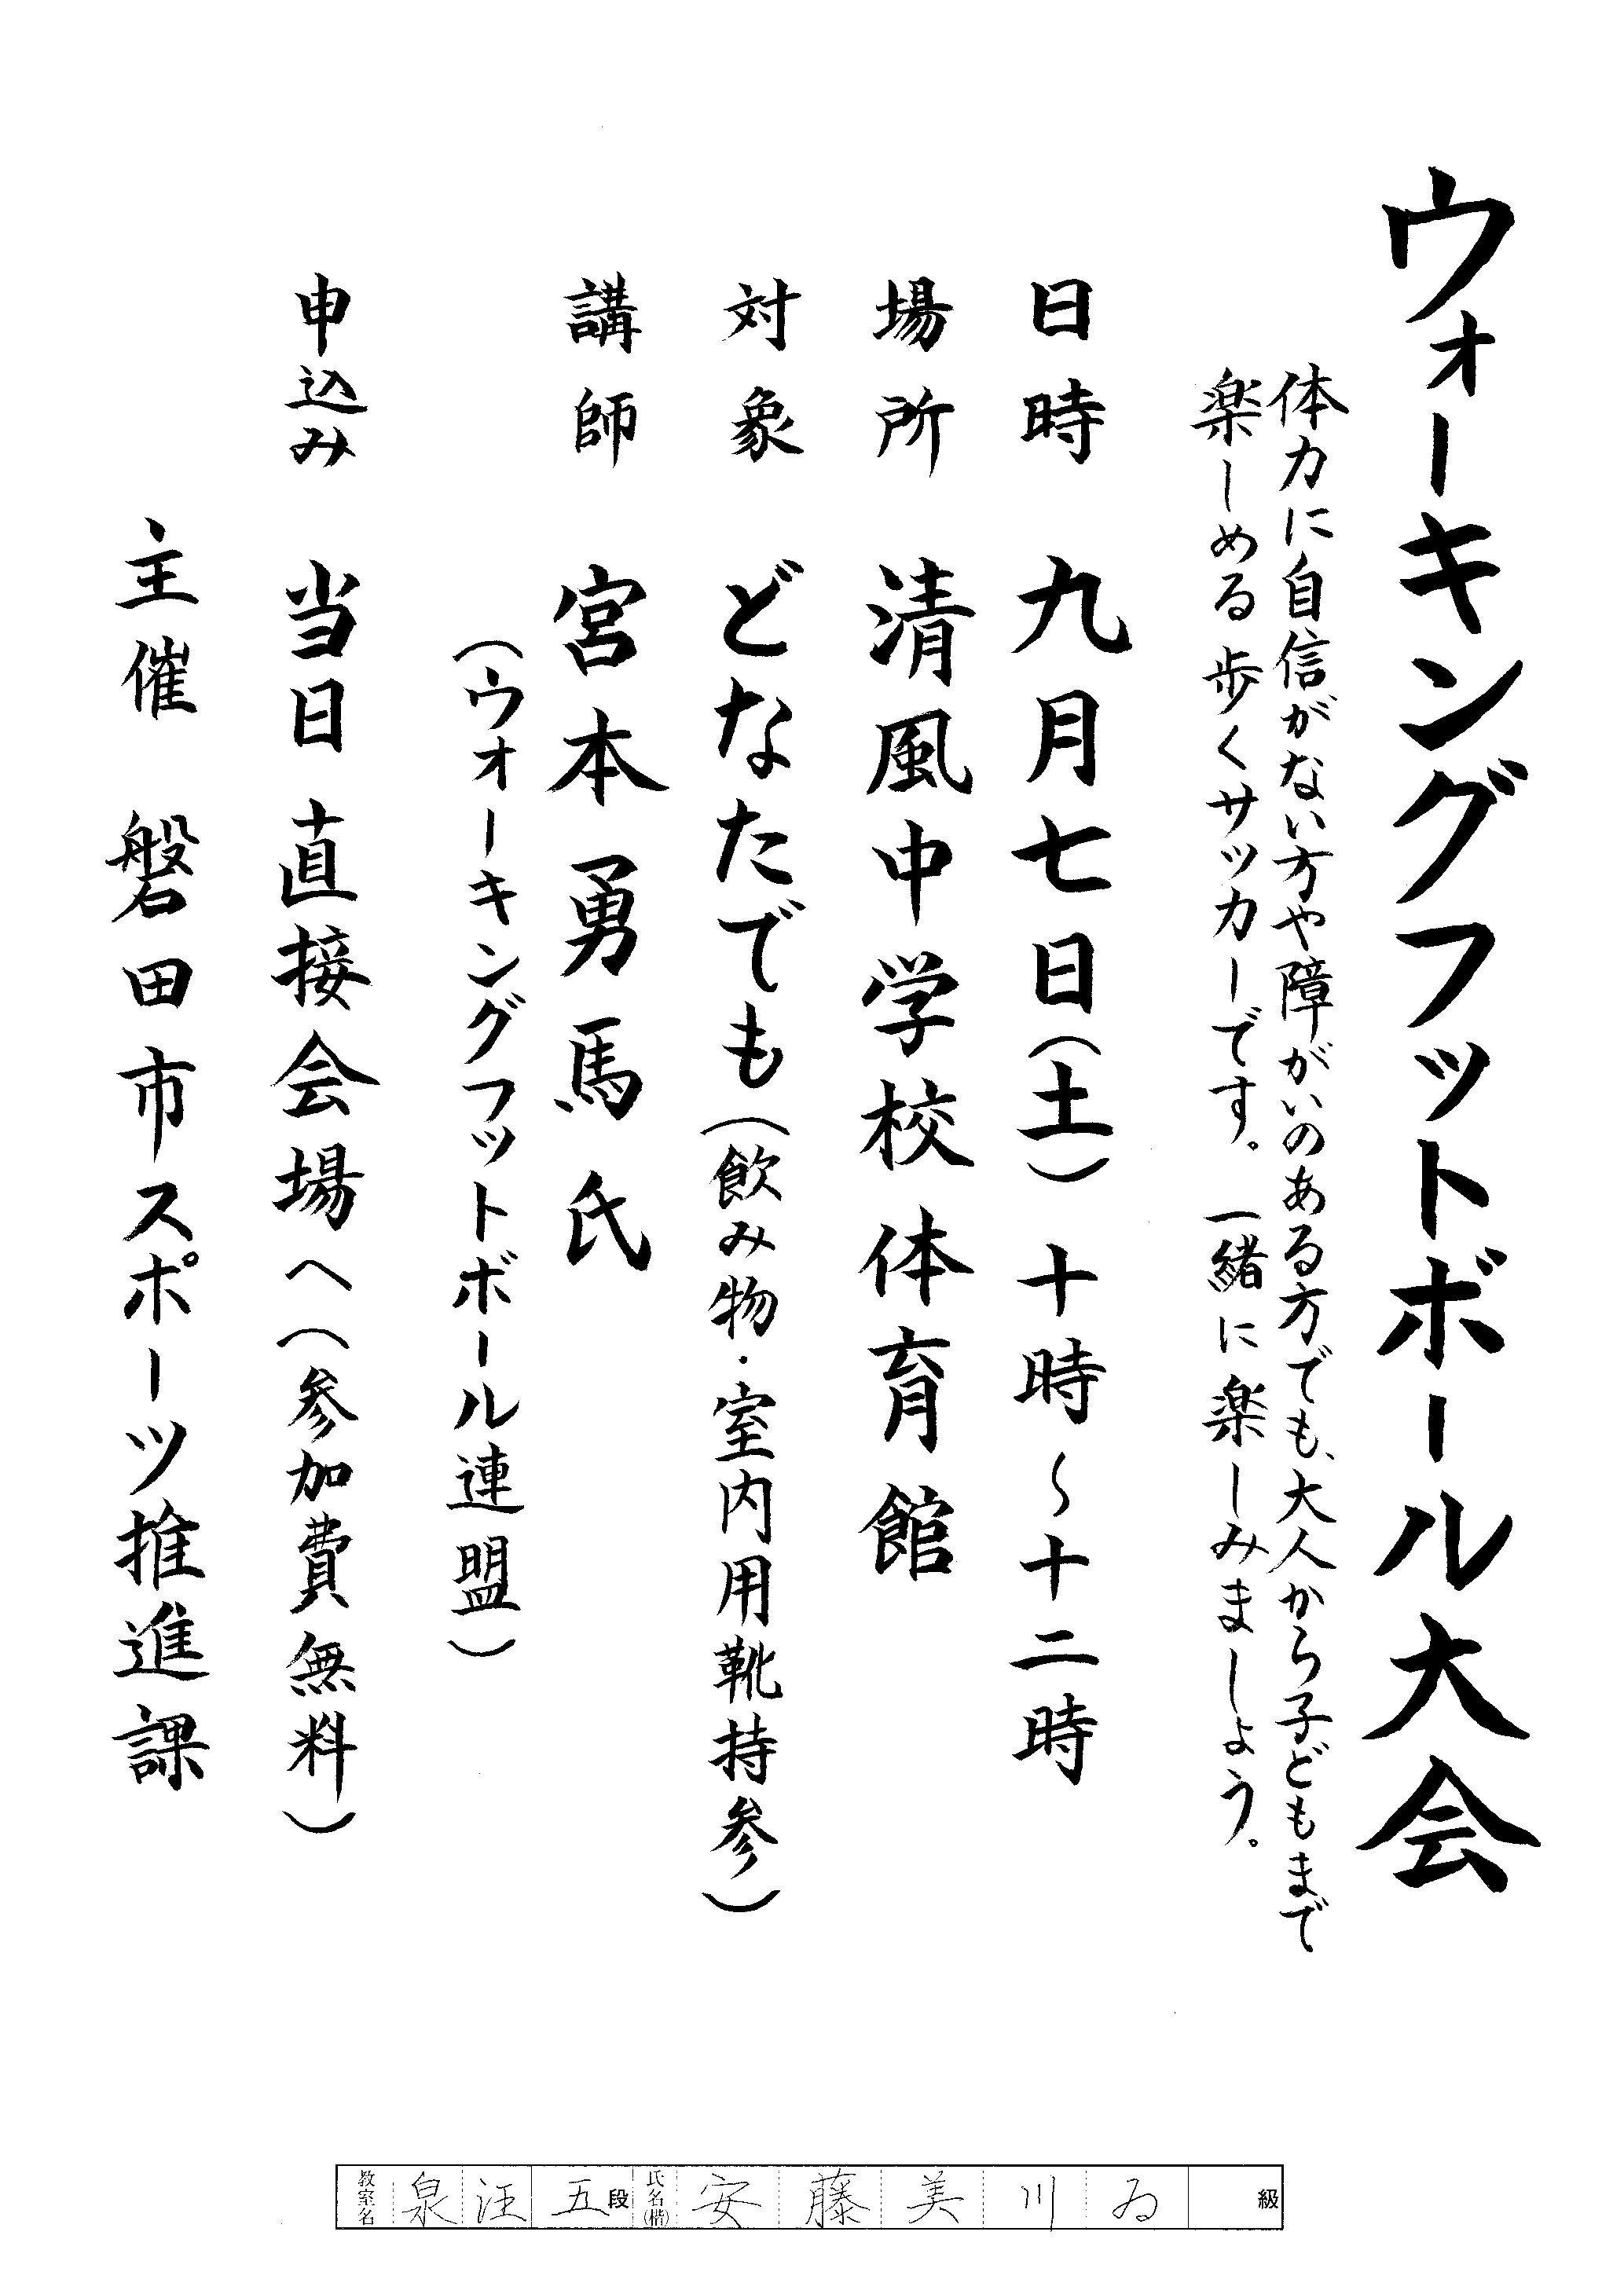 ウォーキングフットボール大会
体力に自信がない方や障がいのある方でも、大人から子どもまで
楽しめる歩くサッカーです。一緒に楽しみましょう。
日時 九月七日(土) 十時～十二時
場所 清風中学校体育館
対象 どなたでも(飲み物・室内用靴持参)
講師 宮本勇馬氏
(ウォーキングフットボール連盟)
申込み 当日直接会場へ(参加費無料)
主催 磐田市スポーツ推進課
教室名 泉汪 五段 氏名(楷) 安藤美川ゐ 級